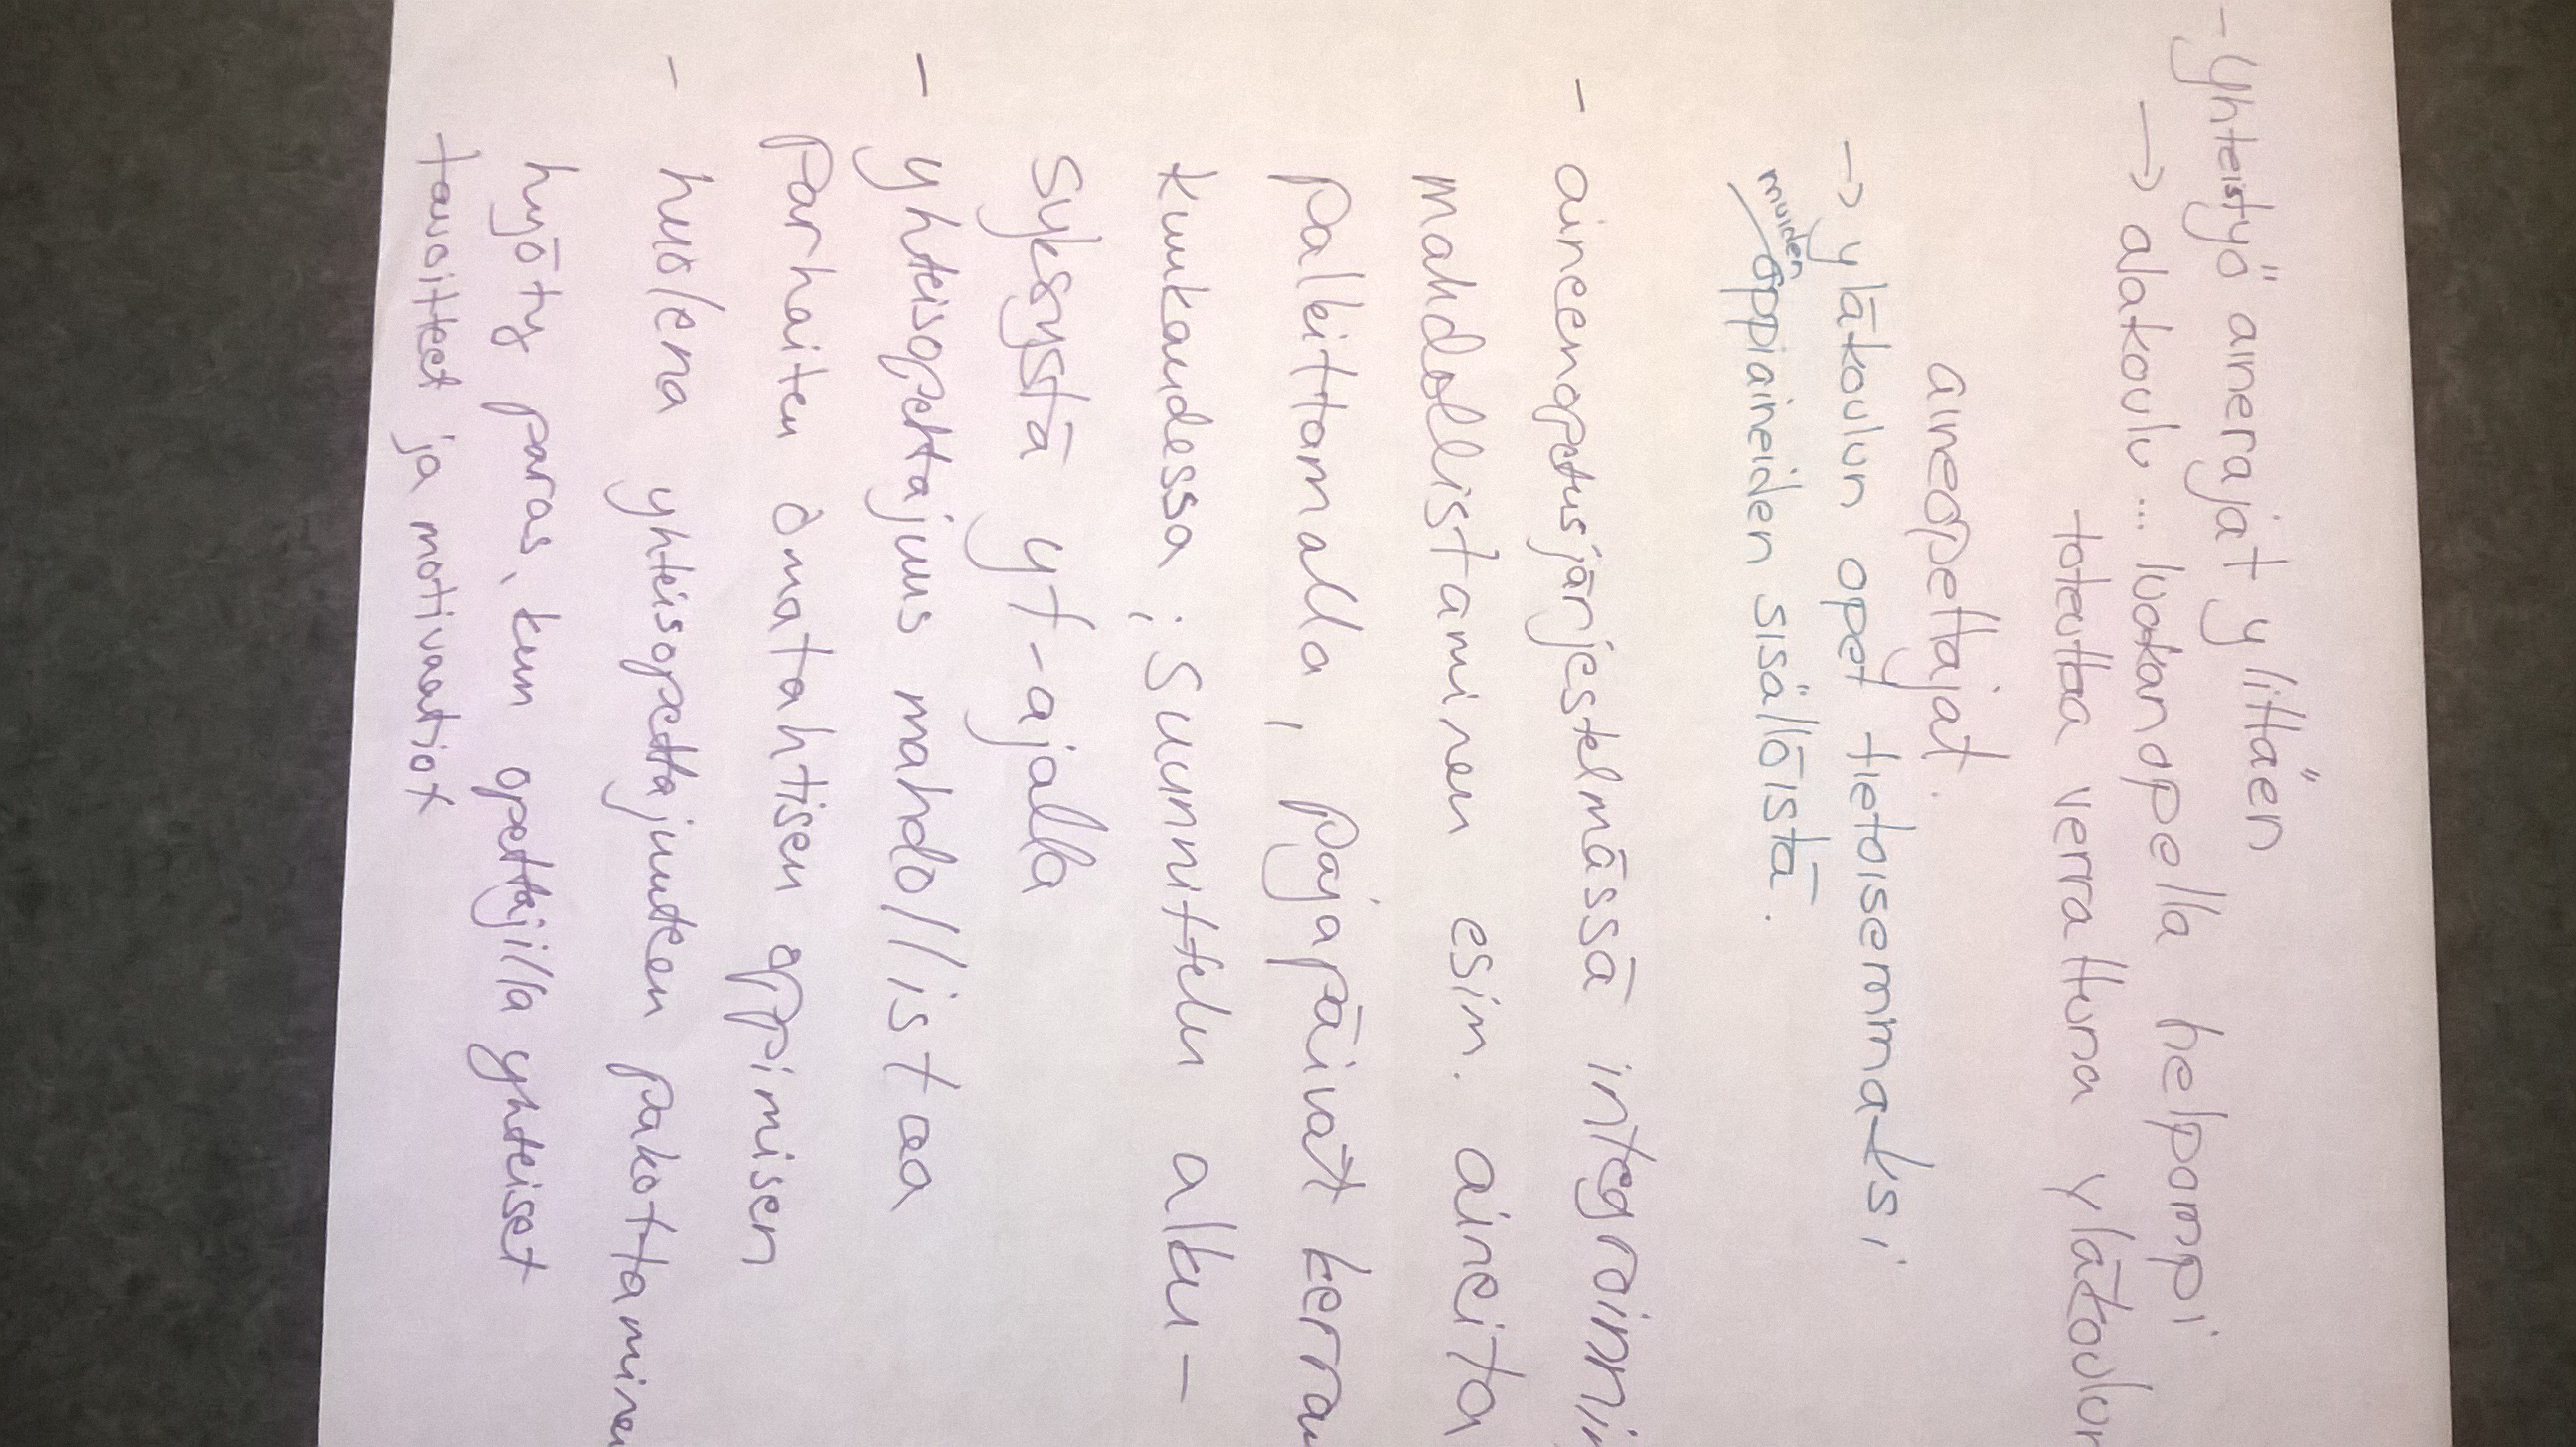 - Yhteistyö ainerajat ylittäen
→ alakoulu... luokanopella helpompi
toteuttaa verrattuna yläkoulun
aineopettajat.
→ yläkoulun opet tietoisemmaksi
muiden oppiaineiden sisällöistä.
- aineenopetusjärjestelmässä integroinnin
mahdollistaminen esim. aineita
palkittamalla, pajapäivät kerran
kuukaudessa; suunnittelu alku-
syksystä yt-ajalla
- yhteisopettajuus mahdollistaa
parhaiten omatahtisen oppimisen
- huolena yhteisopettajuuteen pakottaminen
hyöty paras, kun opettajilla yhteiset
tavoitteet ja motivaatiot